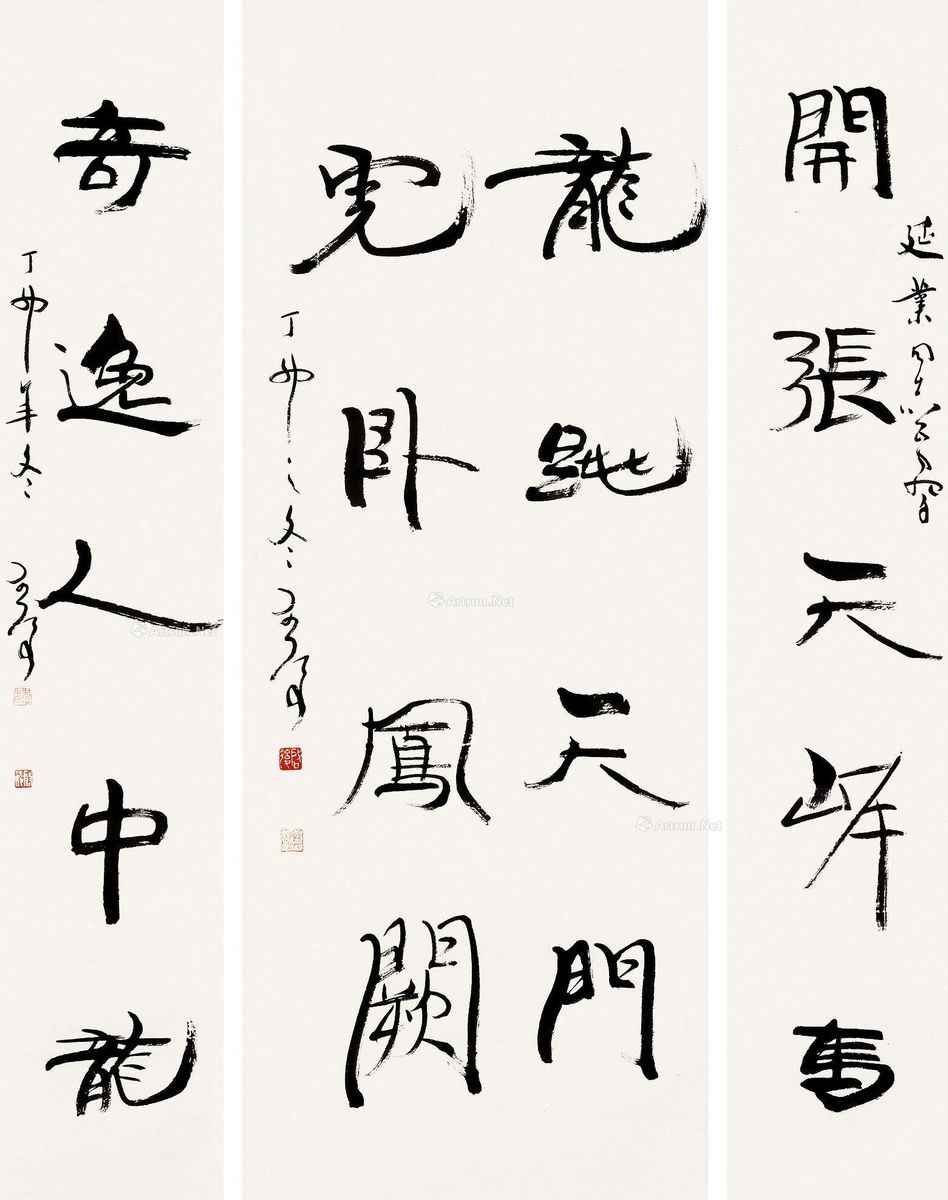 開張天岸馬
延業同志
龍跳天門
虎卧鳳闕
丁卯之冬
奇逸人中龍
丁卯年冬
Artron.Net
Artron.Net
Artron.Net